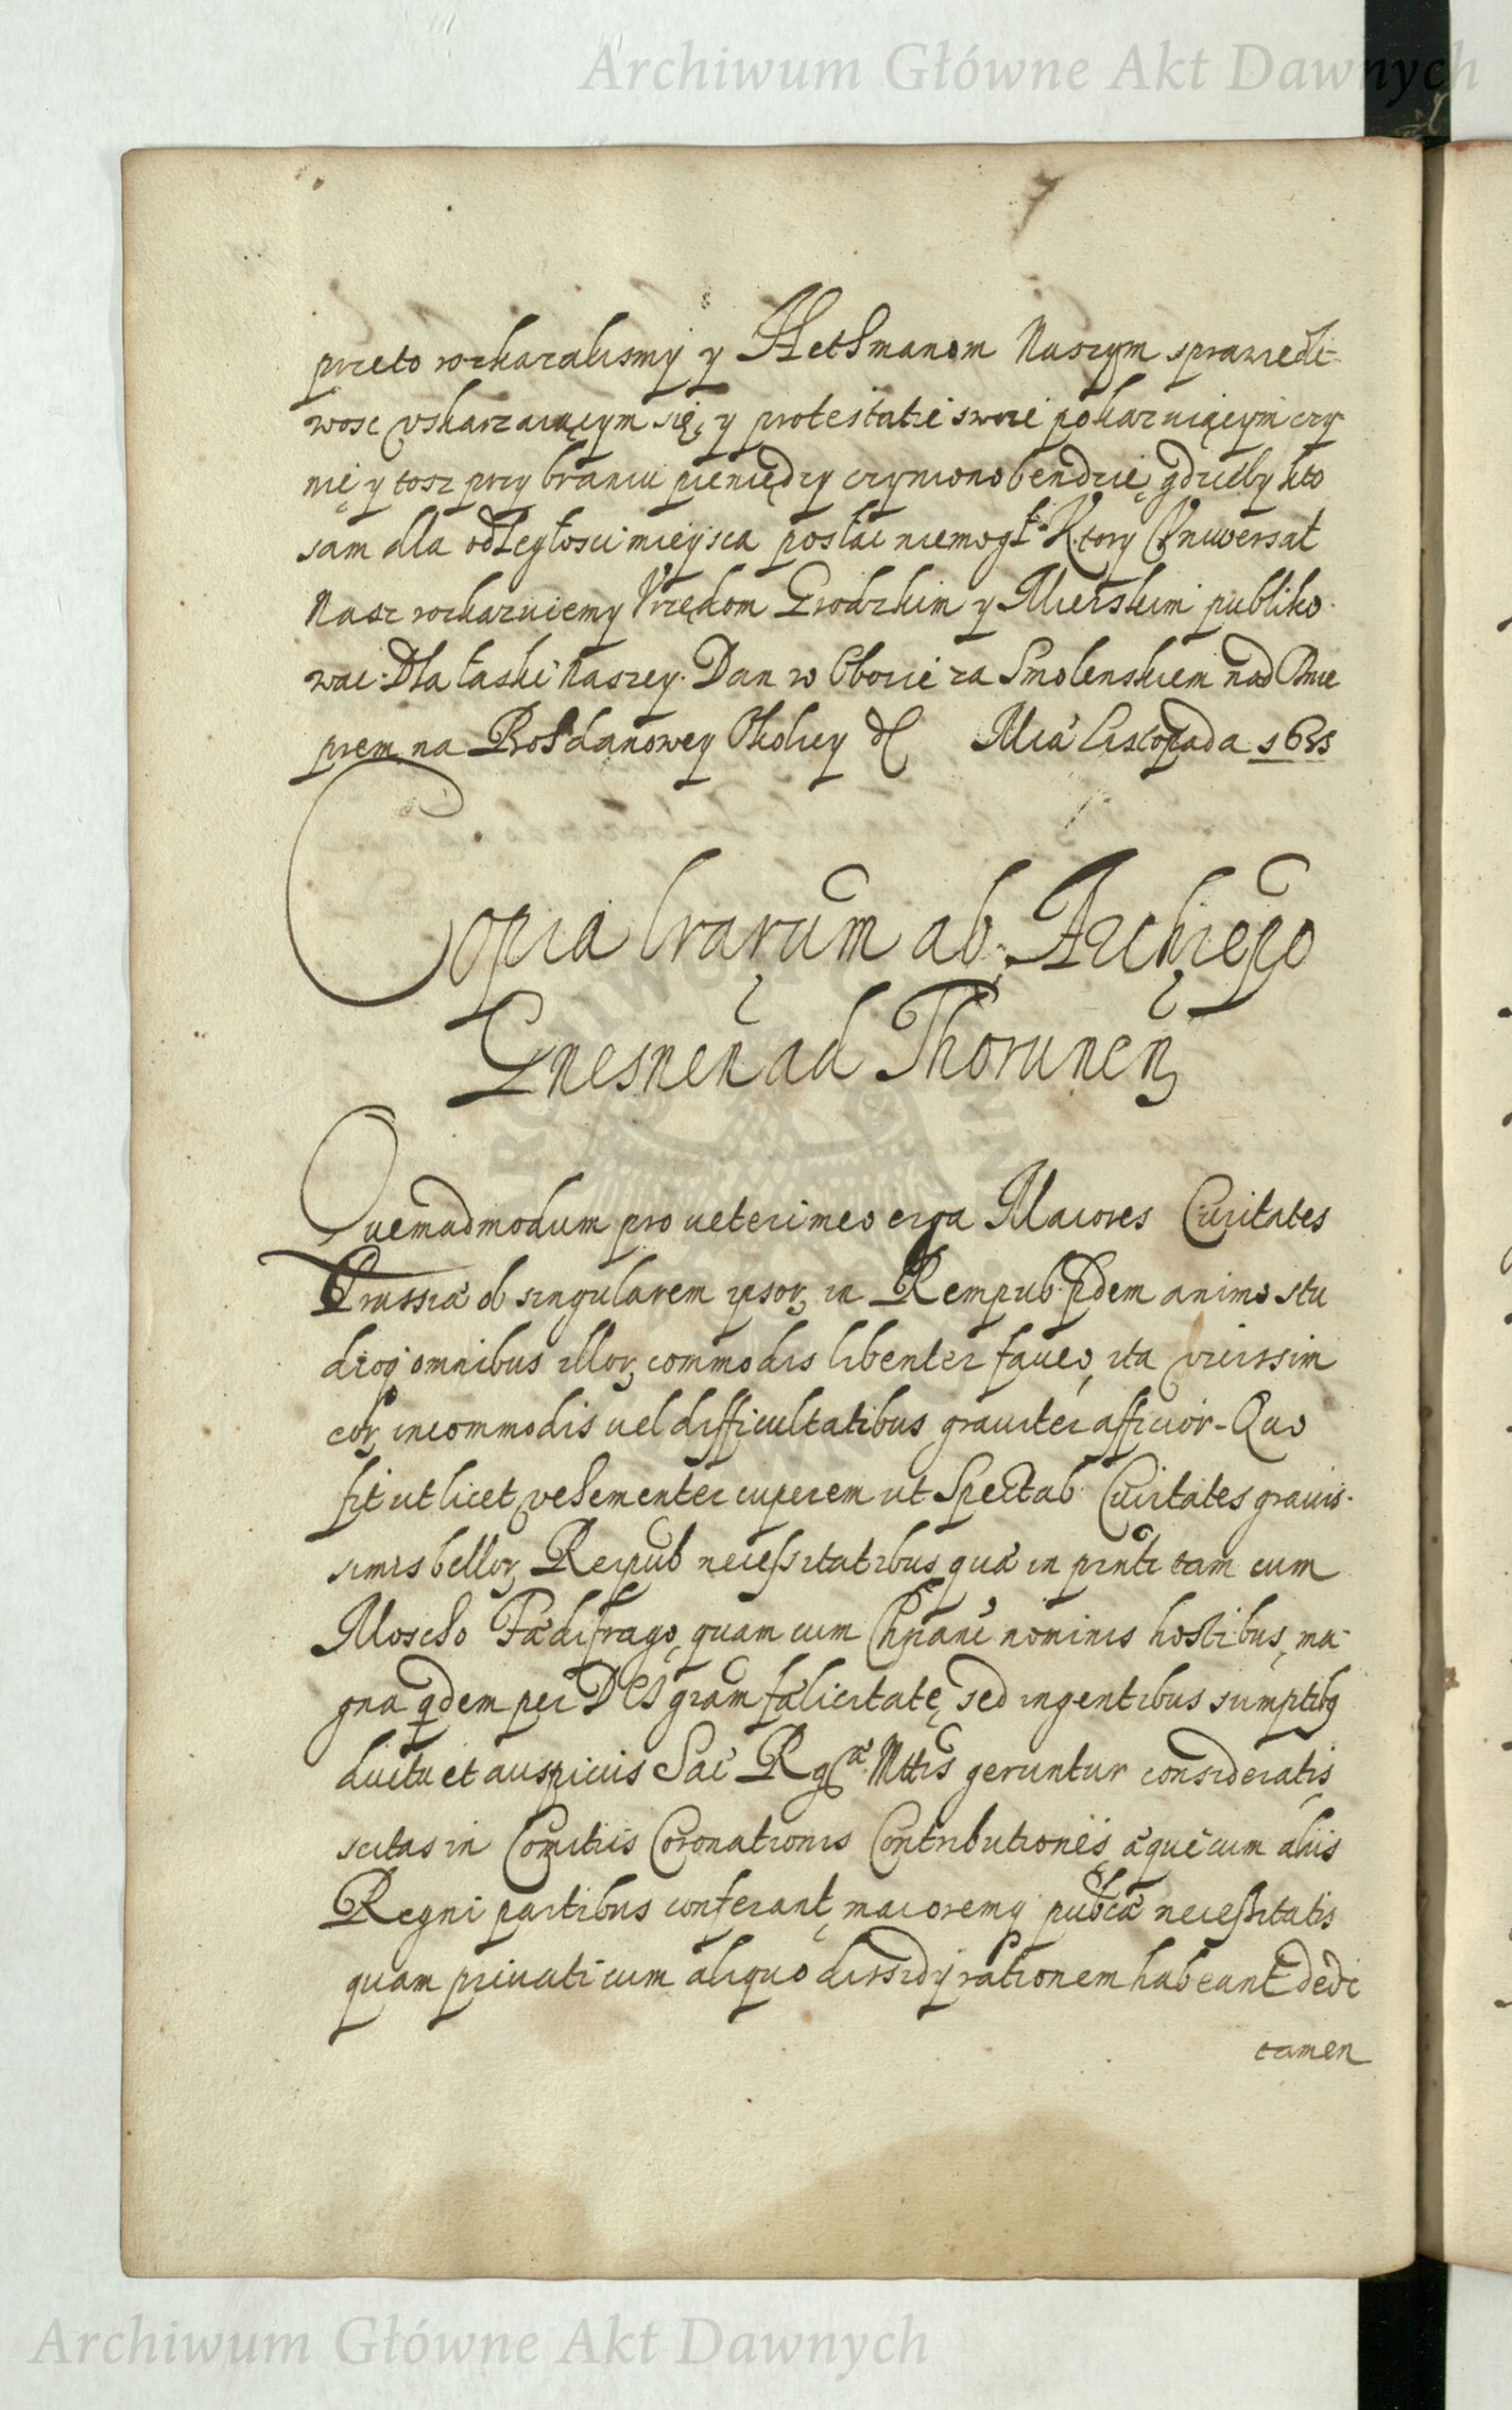 Archiwum Główne Akt Dawnych
przeto rozkazalismy y Hethmanom Naszym sprawiedli-
wosc vskarzaiącym się, y protestatie swoie pokazuiącym czy-
nię y tosz przy braniu pieniędzy czyniono bendzie, gdzieby kto
sam dla odległosci mieysca posłac niemogł. Ktory Vniwersał
Nasz rozkazuiemy Vrzędom Grodzkim y Mieiskim publiko-
wac. Dla łaski Naszey. Dan w Obozie za Smolenskiem nad Dnie
prem na Bohdanowey Okolicy d Mca Listopada 1633
Copia lrarum ab Archiepo
Gnesnen ad Thorunen
Quemadmodum pro ueteri meo erga Maiores Ciuitates
Prussiæ ob singularem ipsor in Rempub. fidem animo stu
dioq omnibus illor commodis libenter faueo, ita vicissim
eor incommodis uel difficultatibus grauiter afficior. Quo
fit ut licet vehementer cuperem ut Spectab. Ciuitates grauis-
simis bellor Reipub necessitatibus quæ in pnti tam cum
Moscho Fædifrago, quam cum Chriani nominis hostibus, ma-
gna qdem per Dei gram fælicitate, sed ingentibus sumptibq
ductu et auspiciis Sac Rgæ Mttis geruntur consideratis,
scitas in Comitiis Coronationis Contributiones æque cum aliis
Regni partibus conferant, maioremq pubcæ necessitatis
quam priuati cum aliquo dissidÿ rationem habeant dedi
tamen
Archiwum Główne Akt Dawnych